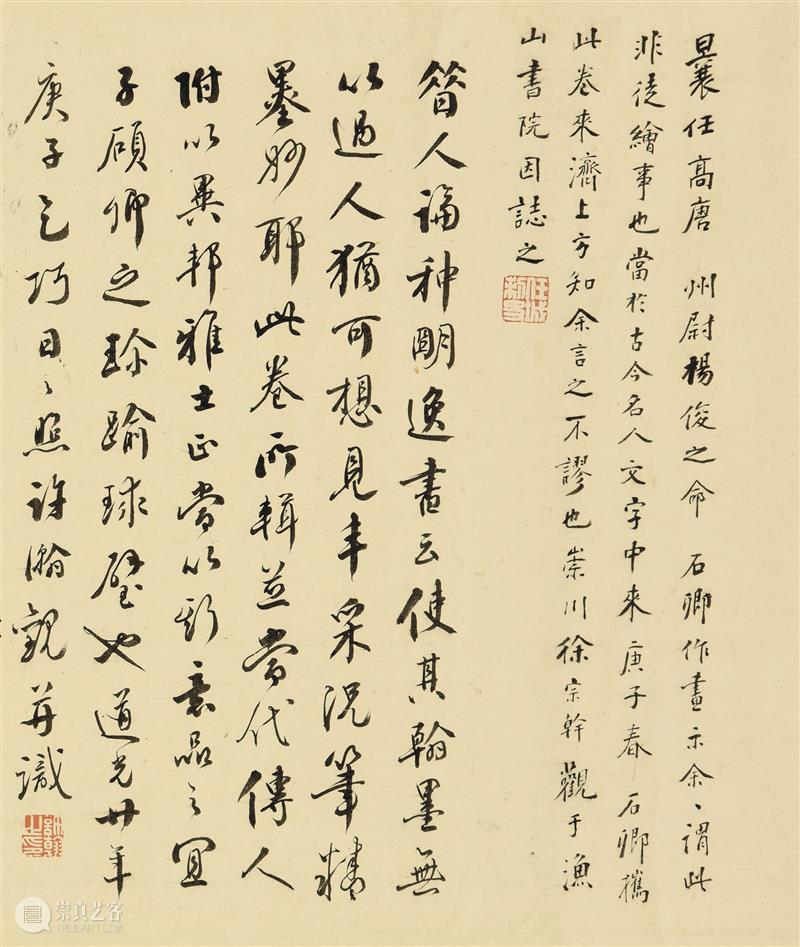 曩任高唐 州尉楊俊之命 石卿作畫示余〻謂此
非徒繪事也當於古今名人文字中來庚子春 石卿攜
此卷來濟上方知余言之不謬也崇川徐宗幹觀于漁
山書院因誌之
昔人論种明逸書云使其翰墨無
以過人猶可想見丰采況筆精
墨妙耶此卷所輯並當代傳人
附以異邦雅士正當以 意品之宜
子碩卿之珍踰球璧也道光廿年
庚子乞巧日日照許瀚觀并識
崇真艺客
TRUEART.COM